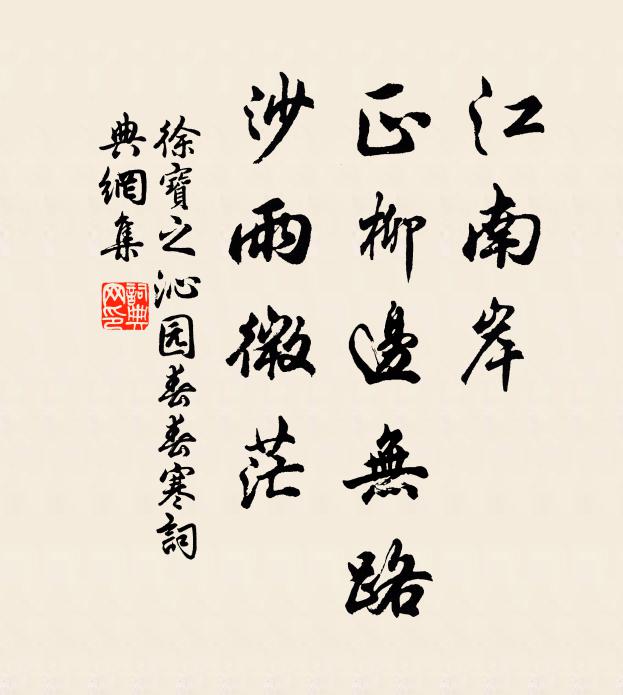 江南岸
正柳邊無路
沙雨微茫
徐寶之沁园春春寒詞
典網集
詞典网印